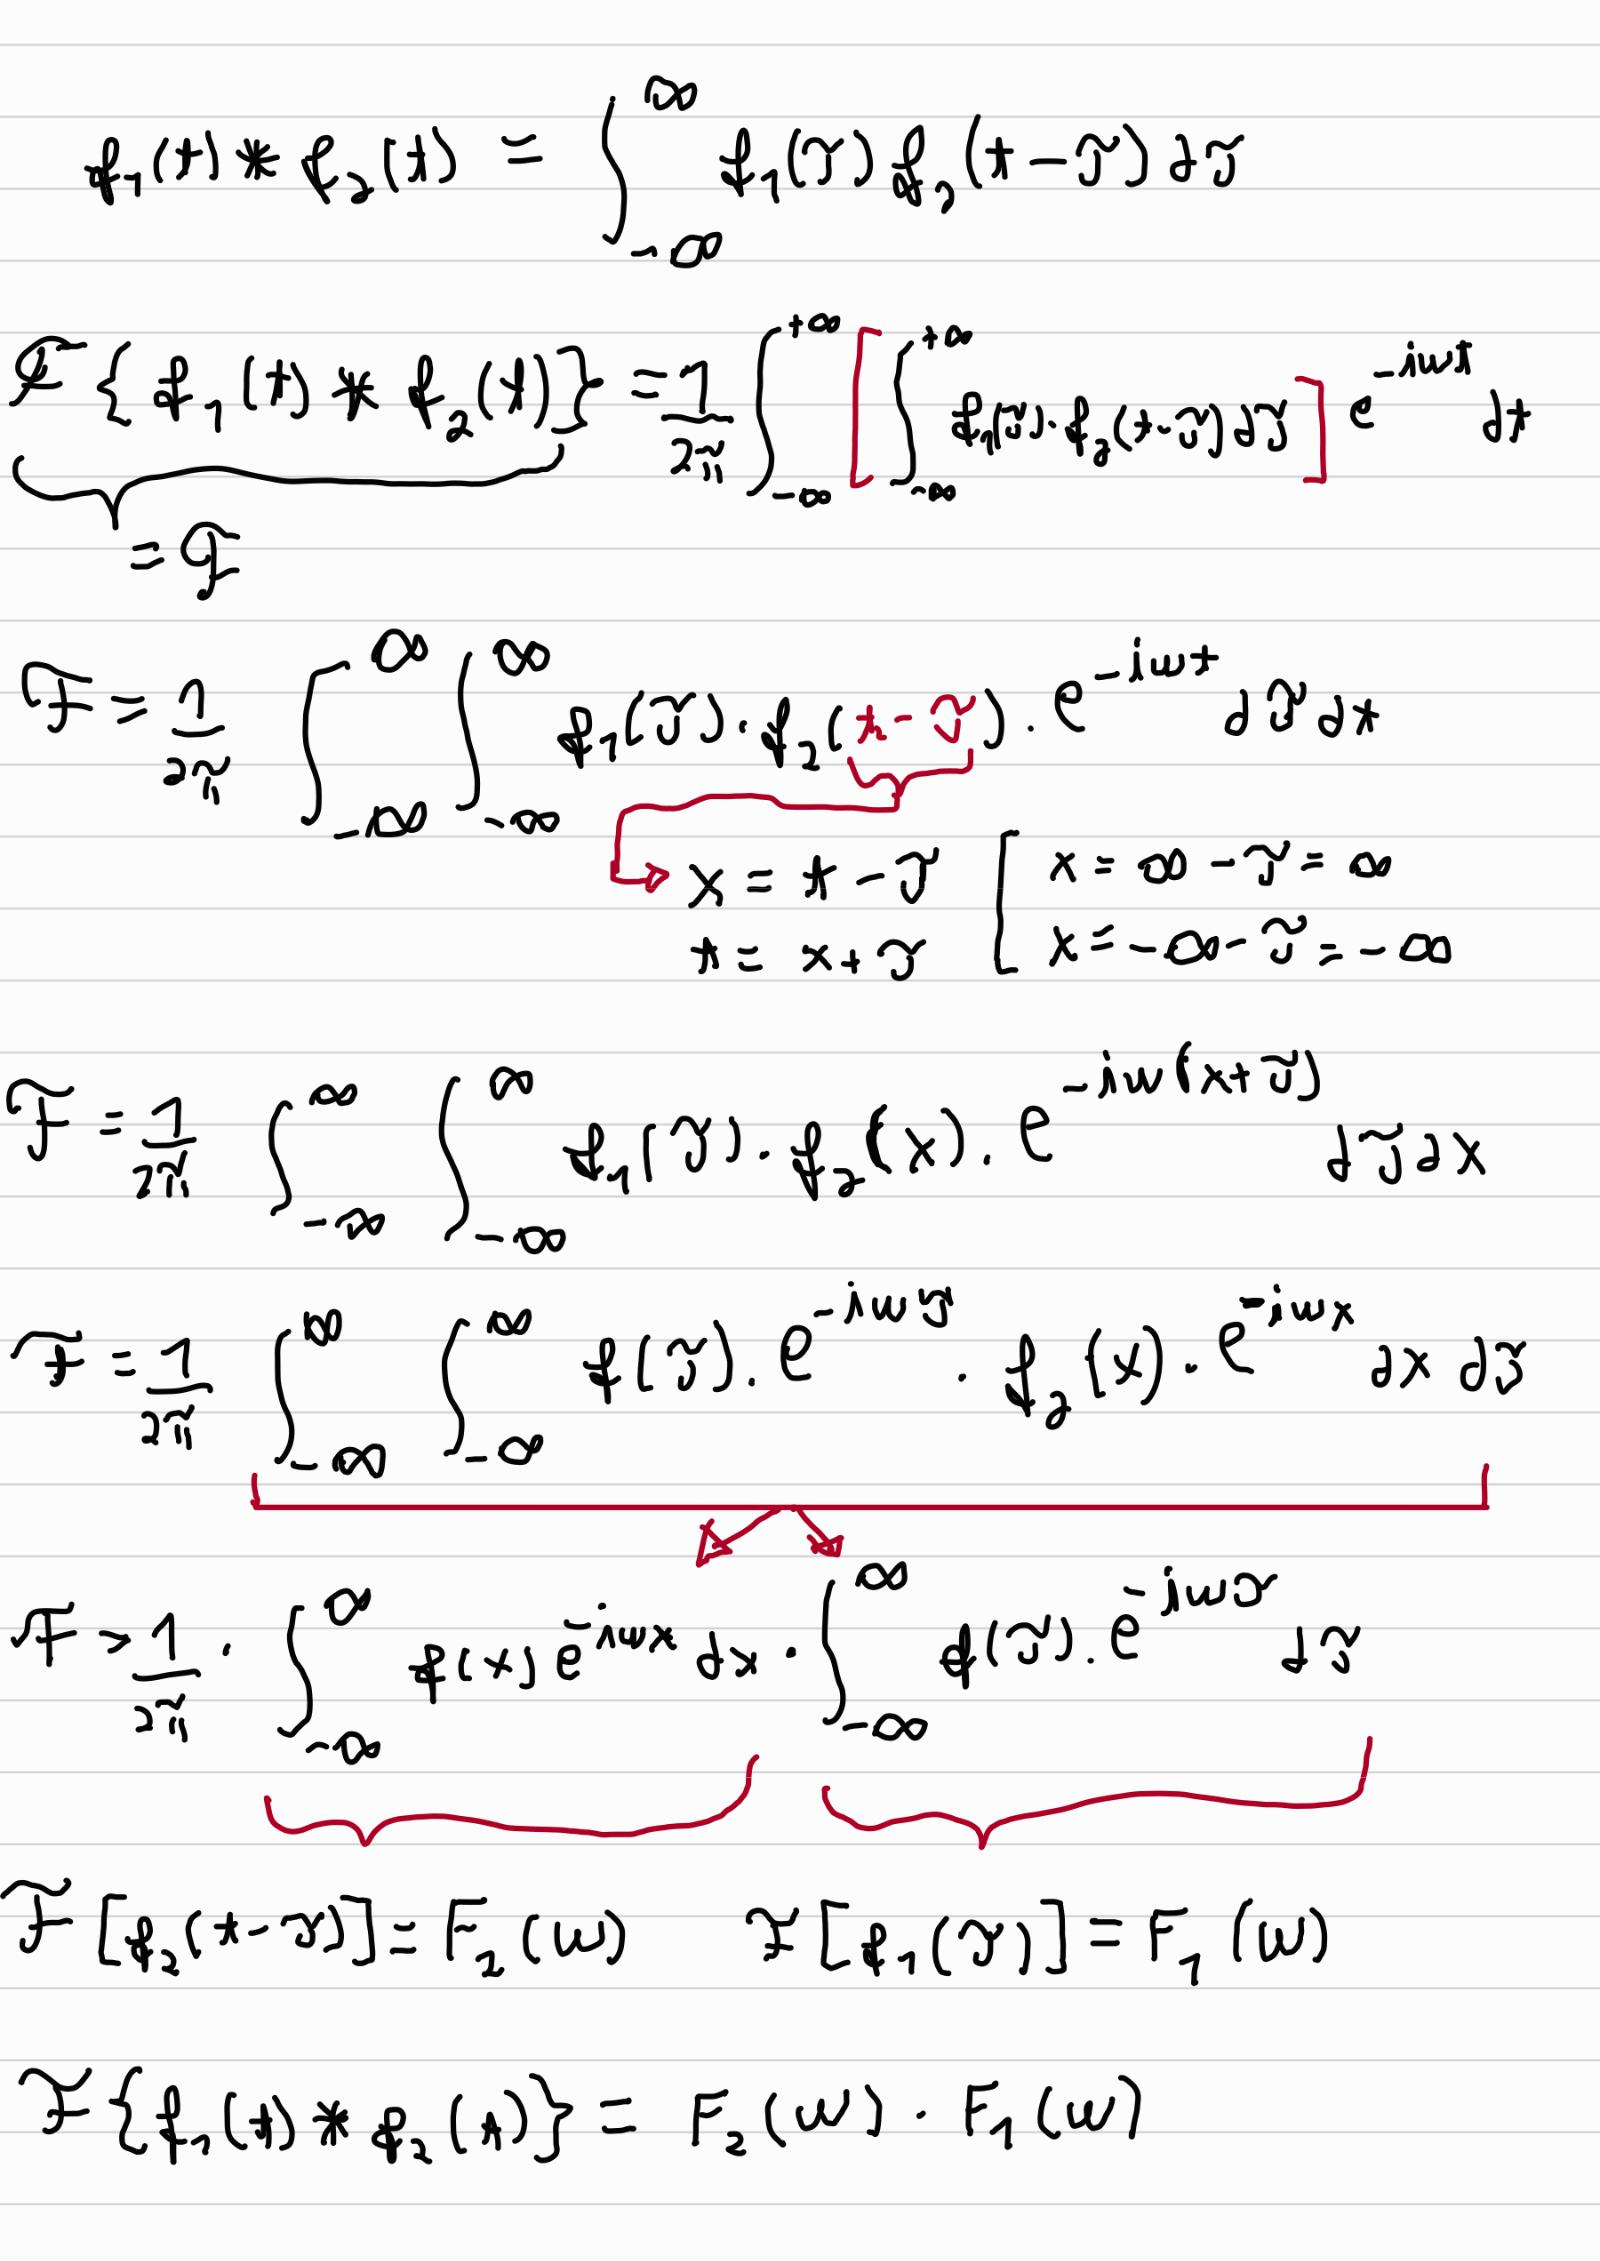 f₁(t) * f₂(t) = ∫_{-∞}^{∞} f₁(τ) f₂(t-τ) dτ
ℱ{f₁(t) * f₂(t)} = 1/2π ∫_{-∞}^{+∞} [∫_{-∞}^{+∞} f₁(τ)·f₂(t-τ) dτ] e^{-iωt} dt
= ℱ
ℱ = 1/2π ∫_{-∞}^{∞} ∫_{-∞}^{∞} f₁(τ)·f₂(t-τ)·e^{-iωt} dτ dt
x = t-τ [ x = ∞-τ = ∞
t = x+τ x = -∞-τ = -∞
ℱ = 1/2π ∫_{-∞}^{∞} ∫_{-∞}^{∞} f₁(τ)·f₂(x)·e^{-iω(x+τ)} dτ dx
ℱ = 1/2π ∫_{-∞}^{∞} ∫_{-∞}^{∞} f(τ)·e^{-iωτ}·f₂(x)·e^{-iωx} dx dτ
ℱ = 1/2π · ∫_{-∞}^{∞} f(x) e^{-iωx} dx · ∫_{-∞}^{∞} f(τ)·e^{-iωτ} dτ
ℱ[f₂(t-τ)] = F₂(ω) ℱ[f₁(τ)] = F₁(ω)
ℱ{f₁(t) * f₂(t)} = F₂(ω) · F₁(ω)